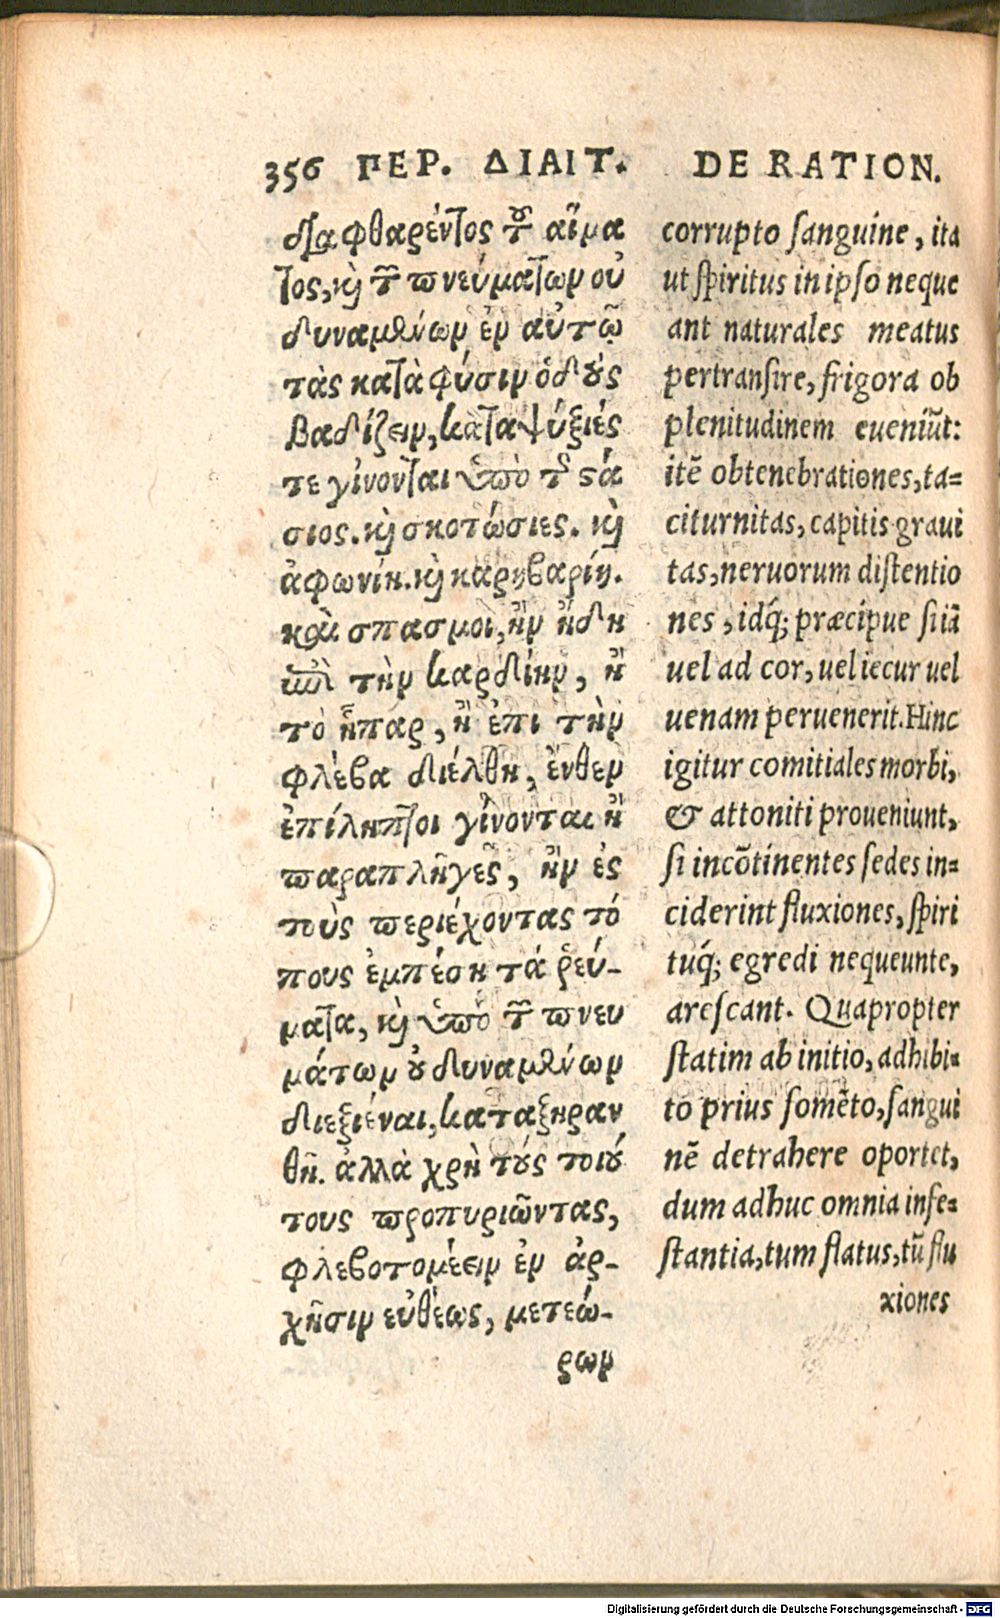 356 ΠΕΡ. ΔΙΑΙΤ.
διαφθαρέντος τοῦ αἵμα
τος, καὶ τῶν πνευμάτων οὐ
δυναμένων ἐν αὐτῷ
τὰς κατὰ φύσιν ὁδοὺς
βαδίζειν, καταψύξιές
τε γίνονται ὑπὸ τῆς στά
σιος. καὶ σκοτώσιες. καὶ
ἀφωνίη. καὶ καρηβαρίη.
καὶ σπασμοὶ, ἢν ἤδη
ἐπὶ τὴν καρδίην, ἢ
τὸ ἧπαρ, ἢ ἐπι τὴν
φλέβα διέλθη, ἔνθεν
ἐπίληπτοι γίνονται ἢ
παραπλῆγες, ἢν ἐς
τοὺς περιέχοντας τό
πους ἐμπέση τά ῥεύ-
ματα, καὶ ὑπὸ τῶν πνευ
μάτων οὐ δυναμένων
διεξιέναι, καταξηραν
θῆ. ἀλλὰ χρὴ τοὺς τοιού
τους προπυριῶντας,
φλεβοτομέειν ἐν ἀρ-
χῆσιν εὐθέως, μετεώ-
ρων
DE RATION.
corrupto sanguine, ita
ut spiritus in ipso neque
ant naturales meatus
pertransire, frigora ob
plenitudinem eueniũt:
itẽ obtenebrationes, ta=
citurnitas, capitis graui
tas, neruorum distentio
nes, idq́; præcipue si iã
uel ad cor, uel iecur uel
uenam peruenerit. Hinc
igitur comitiales morbi,
& attoniti proueniunt,
si incõtinentes sedes in=
ciderint fluxiones, spiri
tuq́; egredi nequeunte,
arescant. Quapropter
statim ab initio, adhibi=
to prius fomẽto, sangui
nẽ detrahere oportet,
dum adhuc omnia infe=
stantia, tum flatus, tũ flu
xiones
Digitalisierung gefördert durch die Deutsche Forschungsgemeinschaft - DFG